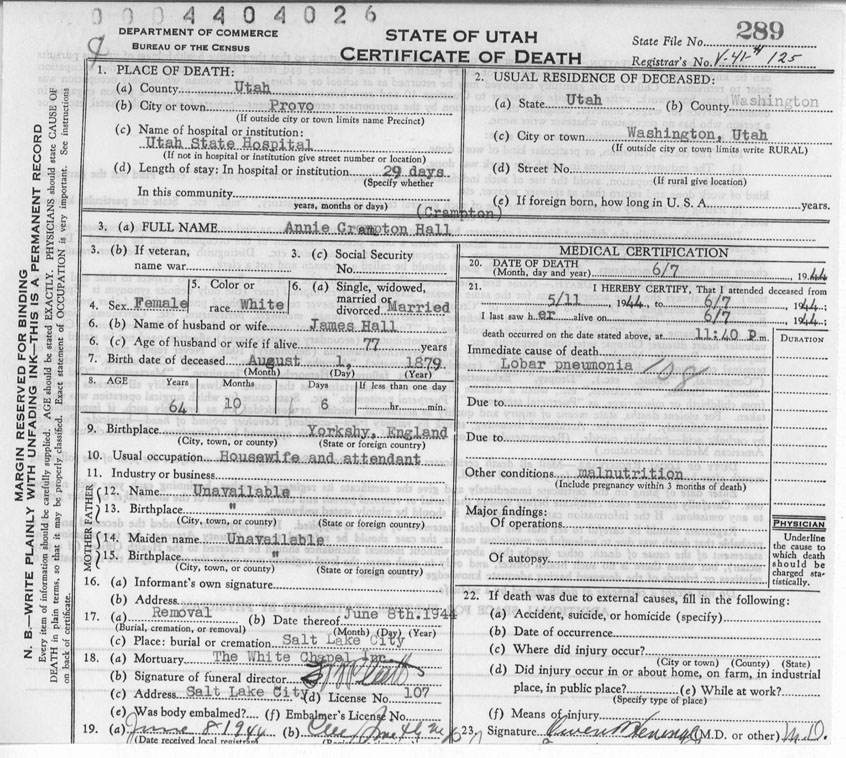 0 0 0 4 4 0 4 0 2 6
DEPARTMENT OF COMMERCE
BUREAU OF THE CENSUS
STATE OF UTAH
CERTIFICATE OF DEATH
State File No. 289
Registrar's No. V-41-# 125
MARGIN RESERVED FOR BINDING
N. B.—WRITE PLAINLY WITH UNFADING INK—THIS IS A PERMANENT RECORD
Every item of information should be carefully supplied. AGE should be stated EXACTLY. PHYSICIANS should state CAUSE OF
DEATH in plain terms, so that it may be properly classified. Exact statement of OCCUPATION is very important. See instructions
on back of certificate.
1. PLACE OF DEATH:
(a) County Utah
(b) City or town Provo
(If outside city or town limits name Precinct)
(c) Name of hospital or institution:
Utah State Hospital
(If not in hospital or institution give street number or location)
(d) Length of stay: In hospital or institution 29 days
(Specify whether
In this community
years, months or days)
2. USUAL RESIDENCE OF DECEASED:
(a) State Utah (b) County Washington
(c) City or town Washington, Utah
(If outside city or town limits write RURAL)
(d) Street No.
(If rural give location)
(e) If foreign born, how long in U. S. A. years.
(Crampton)
3. (a) FULL NAME Annie Crampton Hall
3. (b) If veteran, name war
3. (c) Social Security No.
4. Sex Female
5. Color or race White
6. (a) Single, widowed, married or divorced Married
6. (b) Name of husband or wife James Hall
6. (c) Age of husband or wife if alive 77 years
7. Birth date of deceased August 1, 1879
(Month) (Day) (Year)
8. AGE Years Months Days If less than one day
64 10 6 hr. min.
9. Birthplace Yorkshy, England
(City, town, or county) (State or foreign country)
10. Usual occupation Housewife and attendant
11. Industry or business
FATHER
12. Name Unavailable
13. Birthplace "
(City, town, or county) (State or foreign country)
MOTHER
14. Maiden name Unavailable
15. Birthplace "
(City, town, or county) (State or foreign country)
16. (a) Informant's own signature
(b) Address
17. (a) Removal (b) Date thereof June 8th. 1944
(Burial, cremation, or removal) (Month) (Day) (Year)
(c) Place: burial or cremation Salt Lake City
18. (a) Mortuary The White Chapel Inc.
(b) Signature of funeral director
(c) Address Salt Lake City (d) License No. 107
(e) Was body embalmed? (f) Embalmer's License No.
19. (a) June 8-1944 (b)
(Date received local registrar)
MEDICAL CERTIFICATION
20. DATE OF DEATH
(Month, day and year) 6/7, 1944
21. I HEREBY CERTIFY, That I attended deceased from
5/11 1944, to 6/7 1944;
I last saw her alive on 6/7 1944;
death occurred on the date stated above, at 11:40 P m.
DURATION
Immediate cause of death
Lobar pneumonia 108
Due to
Due to
Other conditions malnutrition
(Include pregnancy within 3 months of death)
Major findings:
Of operations
Of autopsy
PHYSICIAN
Underline
the cause to
which death
should be
charged sta-
tistically.
22. If death was due to external causes, fill in the following:
(a) Accident, suicide, or homicide (specify)
(b) Date of occurrence
(c) Where did injury occur?
(City or town) (County) (State)
(d) Did injury occur in or about home, on farm, in industrial
place, in public place? (e) While at work?
(Specify type of place)
(f) Means of injury
23. Signature Owen (M.D. or other) M.D.